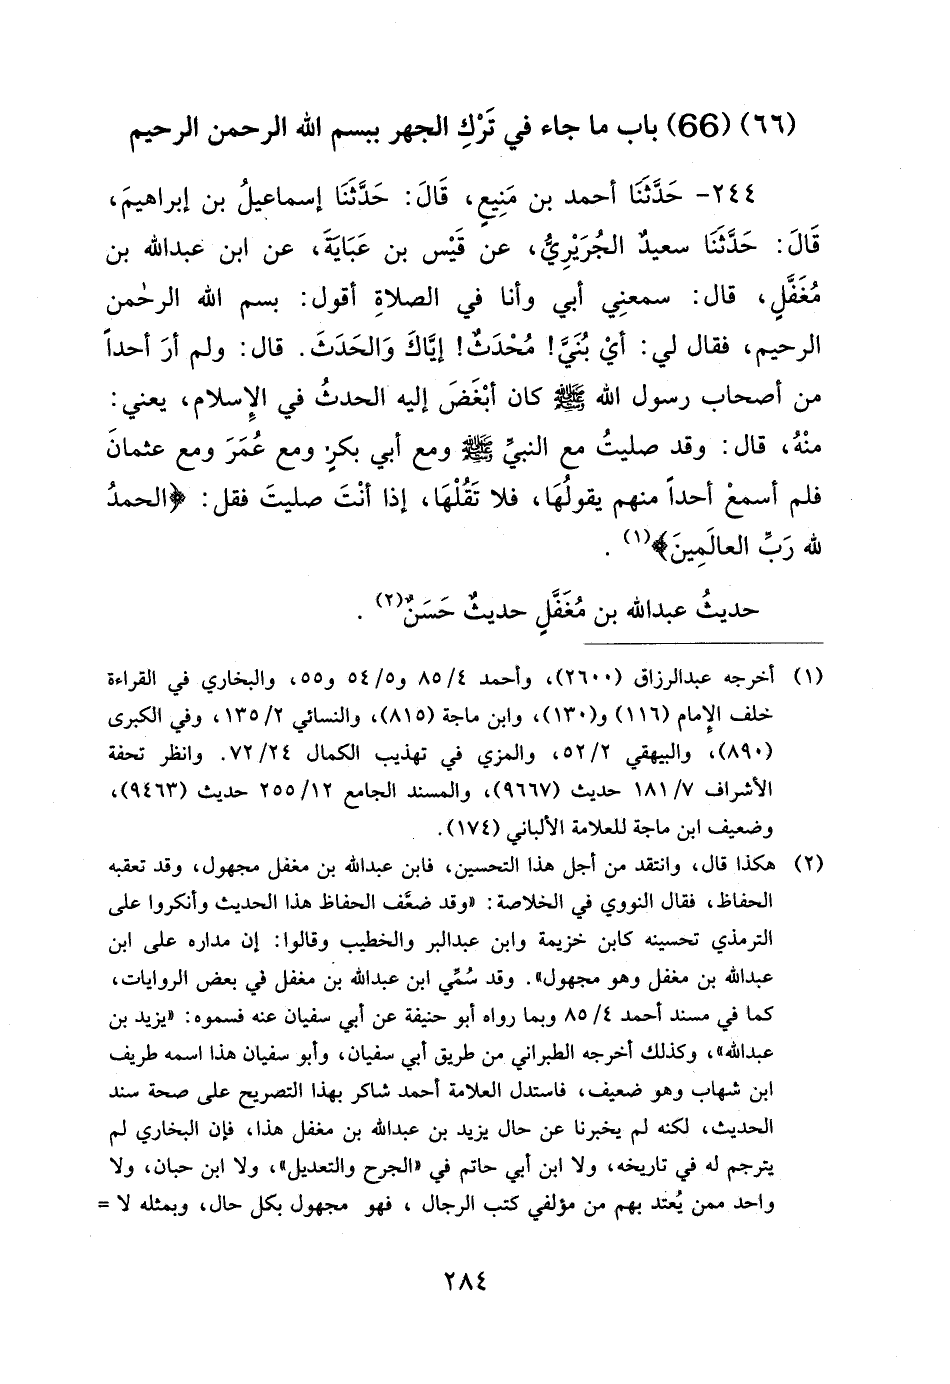 (٦٦) (66) باب ما جاء في تَرْكِ الجهر ببسم الله الرحمن الرحيم
٢٤٤- حَدَّثَنَا أحمد بن مَنِيعٍ، قَالَ: حَدَّثَنَا إسماعيلُ بن إبراهيمَ،
قَالَ: حَدَّثَنَا سعيدٌ الجُرَيْرِيُّ، عن قَيْس بن عَبَايَةَ، عن ابن عبدالله بن
مُغَفَّلٍ، قال: سمعنِي أبي وأنا في الصلاةِ أقول: بسم الله الرحمٰن
الرحيم، فقال لي: أيْ بُنَيَّ! مُحْدَثٌ! إيَّاكَ وَالحَدَثَ. قال: ولم أرَ أحداً
من أصحاب رسول الله ﷺ كان أبْغَضَ إليه الحدثُ في الإسلام، يعني:
منْهُ، قال: وقد صليتُ مع النبيِّ ﷺ ومع أبي بكرٍ ومع عُمَرَ ومع عثمانَ
فلم أسمعْ أحداً منهم يقولُهَا، فلا تَقُلْهَا، إذا أنْتَ صليتَ فقل: ﴿الحمدُ
لله رَبِّ العالَمِينَ﴾(١) .
حديثُ عبدالله بن مُغَفَّلٍ حديثٌ حَسَنٌ(٢) .
(١) أخرجه عبدالرزاق (٢٦٠٠)، وأحمد ٤/ ٨٥ و٥/ ٥٤ و٥٥، والبخاري في القراءة
خلف الإمام (١١٦) و(١٣٠)، وابن ماجة (٨١٥)، والنسائي ٢/ ١٣٥، وفي الكبرى
(٨٩٠)، والبيهقي ٢/ ٥٢، والمزي في تهذيب الكمال ٢٤/ ٧٢. وانظر تحفة
الأشراف ٧/ ١٨١ حديث (٩٦٦٧)، والمسند الجامع ١٢/ ٢٥٥ حديث (٩٤٦٣)،
وضعيف ابن ماجة للعلامة الألباني (١٧٤).
(٢) هكذا قال، وانتقد من أجل هذا التحسين، فابن عبدالله بن مغفل مجهول، وقد تعقبه
الحفاظ، فقال النووي في الخلاصة: «وقد ضعَّف الحفاظ هذا الحديث وأنكروا على
الترمذي تحسينه كابن خزيمة وابن عبدالبر والخطيب وقالوا: إن مداره على ابن
عبدالله بن مغفل وهو مجهول». وقد سُمِّي ابن عبدالله بن مغفل في بعض الروايات،
كما في مسند أحمد ٤/ ٨٥ وبما رواه أبو حنيفة عن أبي سفيان عنه فسموه: «يزيد بن
عبدالله»، وكذلك أخرجه الطبراني من طريق أبي سفيان، وأبو سفيان هذا اسمه طريف
ابن شهاب وهو ضعيف، فاستدل العلامة أحمد شاكر بهذا التصريح على صحة سند
الحديث، لكنه لم يخبرنا عن حال يزيد بن عبدالله بن مغفل هذا، فإن البخاري لم
يترجم له في تاريخه، ولا ابن أبي حاتم في «الجرح والتعديل»، ولا ابن حبان، ولا
واحد ممن يُعتد بهم من مؤلفي كتب الرجال ، فهو مجهول بكل حال، وبمثله لا =
٢٨٤